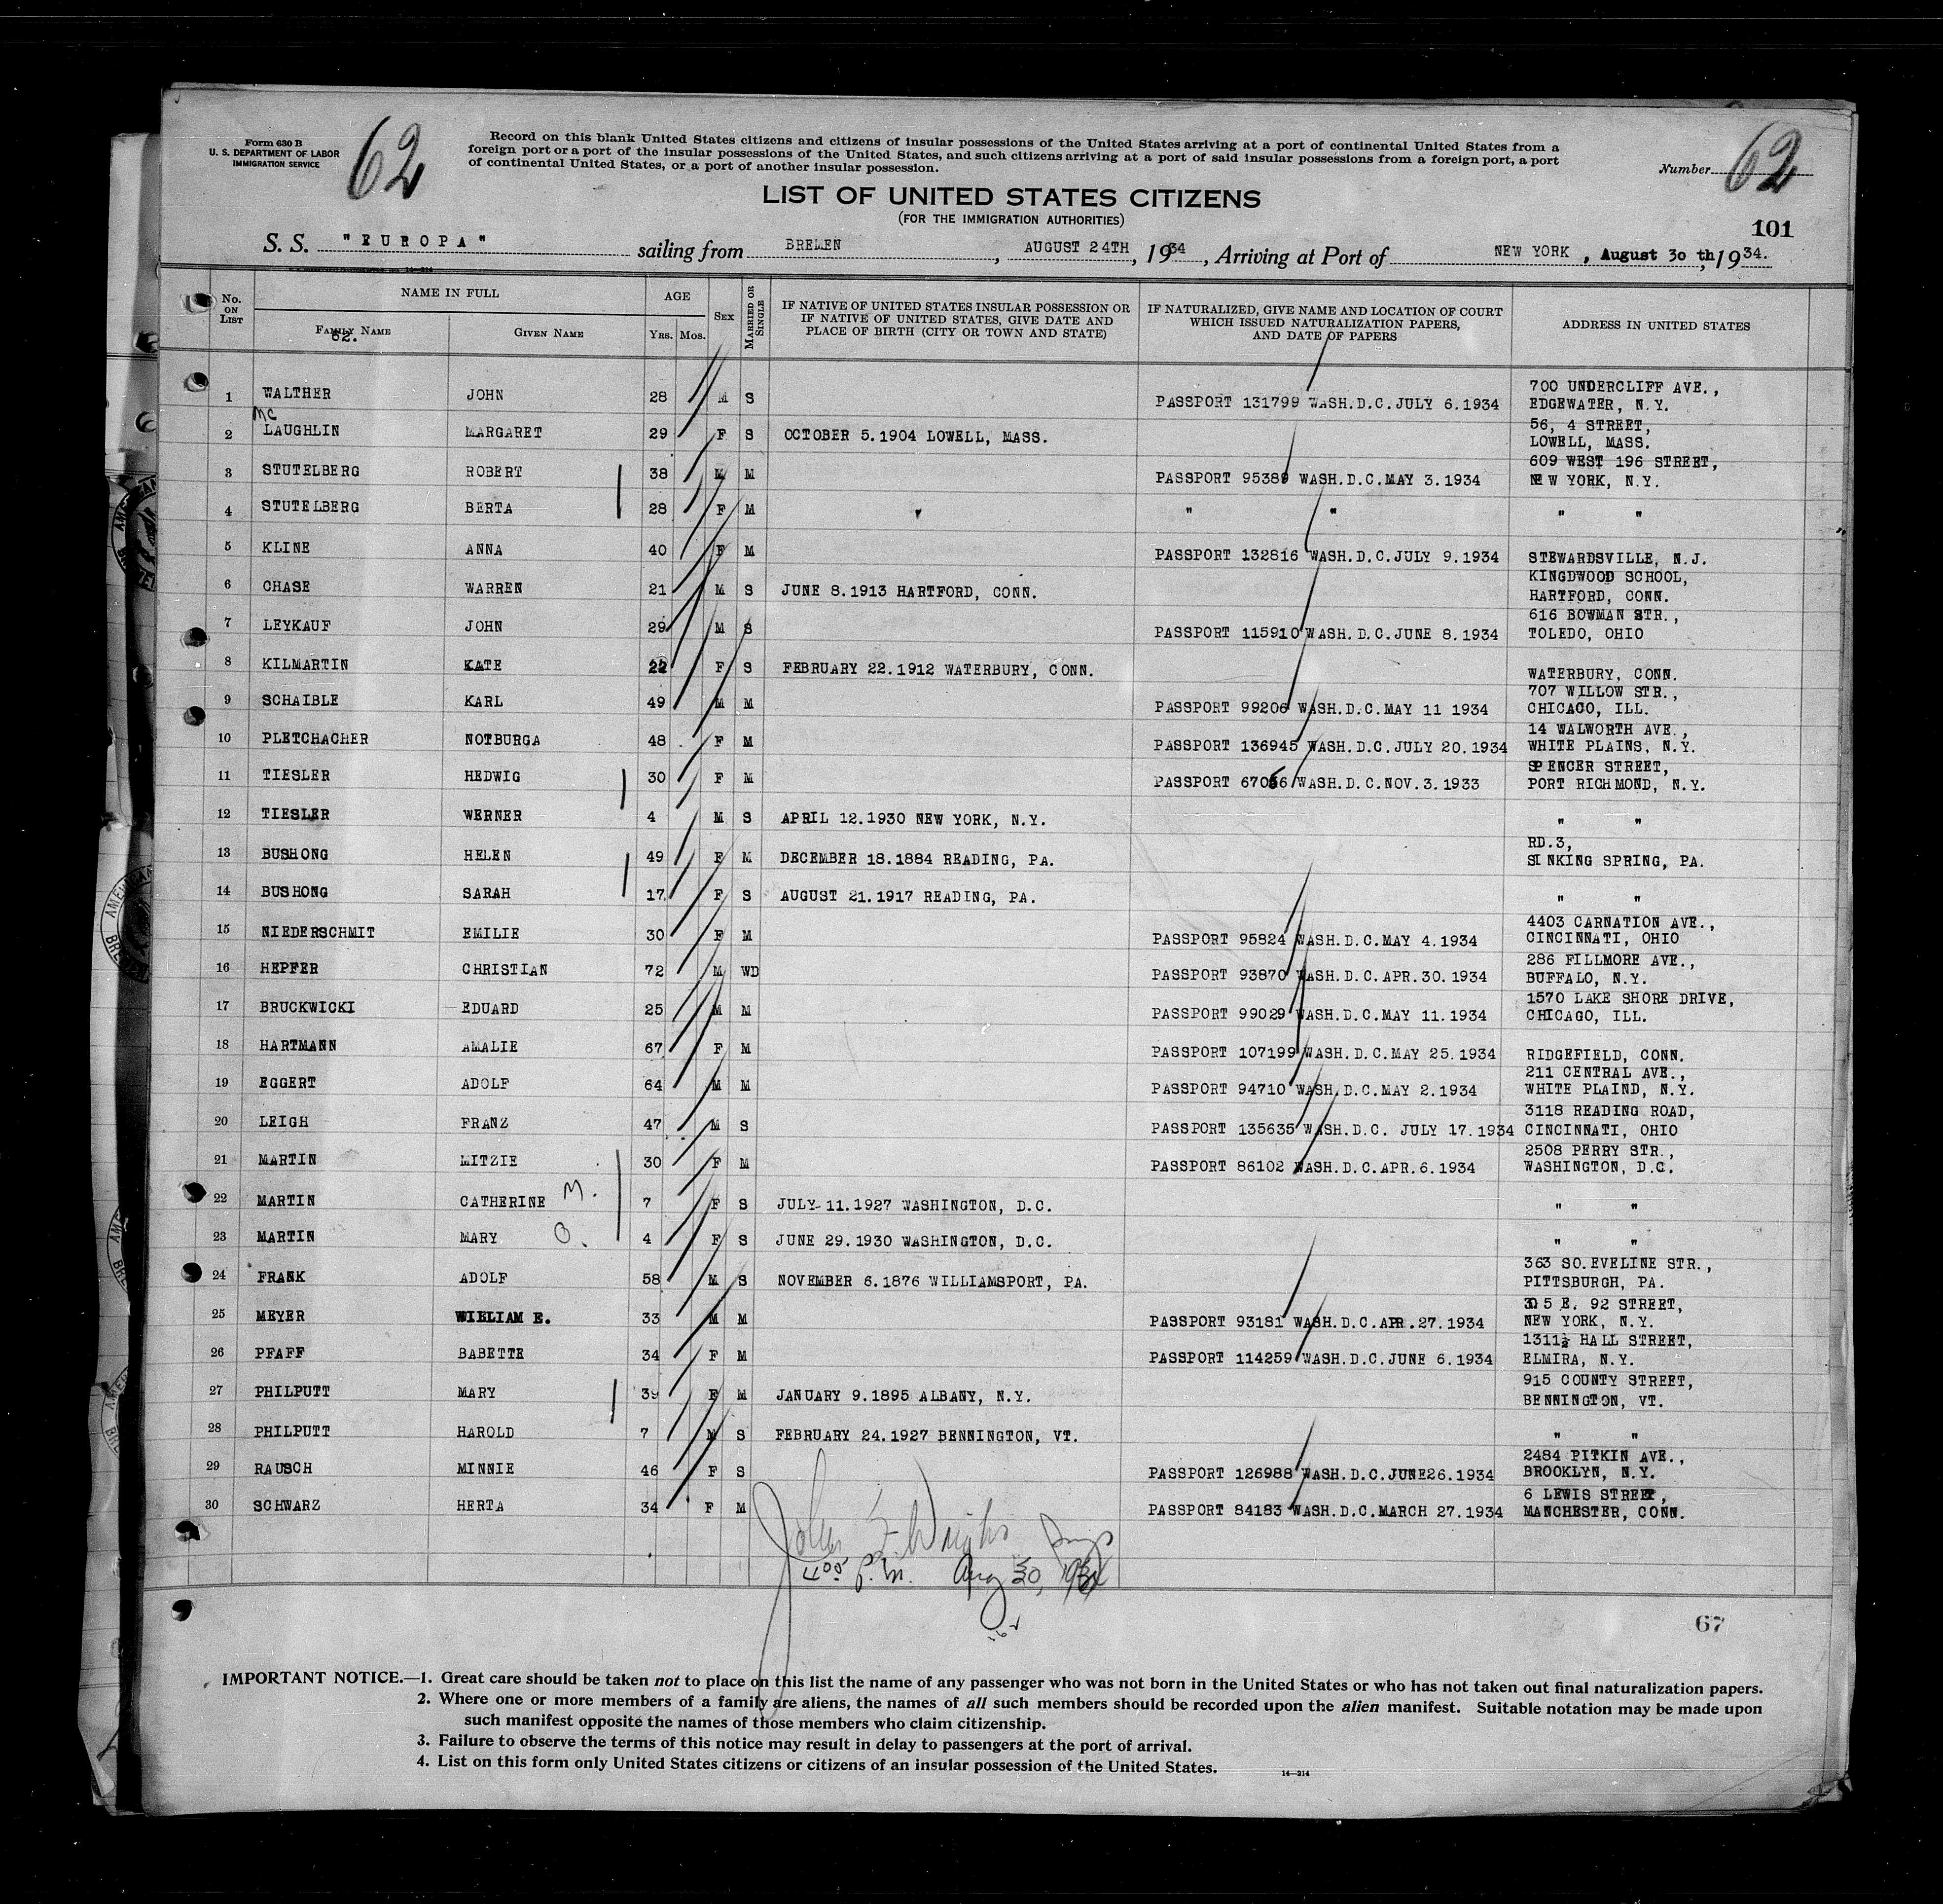 Form 630 B
U. S. DEPARTMENT OF LABOR
IMMIGRATION SERVICE
62
Record on this blank United States citizens and citizens of insular possessions of the United States arriving at a port of continental United States from a
foreign port or a port of the insular possessions of the United States, and such citizens arriving at a port of said insular possessions from a foreign port, a port
of continental United States, or a port of another insular possession.
Number 62
LIST OF UNITED STATES CITIZENS
(FOR THE IMMIGRATION AUTHORITIES)
101
S. S. "EUROPA" sailing from BRELEN, AUGUST 24TH, 1934, Arriving at Port of NEW YORK, August 30 th, 1934.
No. ON LIST NAME IN FULL FAMILY NAME GIVEN NAME AGE YRS. MOS. SEX MARRIED OR SINGLE IF NATIVE OF UNITED STATES INSULAR POSSESSION OR IF NATIVE OF UNITED STATES, GIVE DATE AND PLACE OF BIRTH (CITY OR TOWN AND STATE) IF NATURALIZED, GIVE NAME AND LOCATION OF COURT WHICH ISSUED NATURALIZATION PAPERS, AND DATE OF PAPERS ADDRESS IN UNITED STATES
62.
1 WALTHER JOHN 28 M S PASSPORT 131799 WASH.D.C.JULY 6.1934 700 UNDERCLIFF AVE., EDGEWATER, N.Y.
2 Mc LAUGHLIN MARGARET 29 F S OCTOBER 5.1904 LOWELL, MASS. 56, 4 STREET, LOWELL, MASS.
3 STUTELBERG ROBERT 38 M M PASSPORT 95389 WASH.D.C.MAY 3.1934 609 WEST 196 STREET, NEW YORK, N.Y.
4 STUTELBERG BERTA 28 F M " " " " "
5 KLINE ANNA 40 F M PASSPORT 132816 WASH.D.C.JULY 9.1934 STEWARDSVILLE, N.J.
6 CHASE WARREN 21 M S JUNE 8.1913 HARTFORD, CONN. KINGDWOOD SCHOOL, HARTFORD, CONN.
7 LEYKAUF JOHN 29 M S PASSPORT 115910 WASH.D.C.JUNE 8.1934 616 BOWMAN STR., TOLEDO, OHIO
8 KILMARTIN KATE 22 F S FEBRUARY 22.1912 WATERBURY, CONN. WATERBURY, CONN.
9 SCHAIBLE KARL 49 M M PASSPORT 99206 WASH.D.C.MAY 11 1934 707 WILLOW STR., CHICAGO, ILL.
10 PLETCHACHER NOTBURGA 48 F M PASSPORT 136945 WASH.D.C.JULY 20.1934 14 WALWORTH AVE., WHITE PLAINS, N.Y.
11 TIESLER HEDWIG 30 F M PASSPORT 67056 WASH.D.C.NOV.3.1933 SPENCER STREET, PORT RICHMOND, N.Y.
12 TIESLER WERNER 4 M S APRIL 12.1930 NEW YORK, N.Y. " "
13 BUSHONG HELEN 49 F M DECEMBER 18.1884 READING, PA. RD.3, SINKING SPRING, PA.
14 BUSHONG SARAH 17 F S AUGUST 21.1917 READING, PA. " "
15 NIEDERSCHMIT EMILIE 30 F M PASSPORT 95824 WASH.D.C.MAY 4.1934 4403 CARNATION AVE., CINCINNATI, OHIO
16 HEPFER CHRISTIAN 72 M WD PASSPORT 93870 WASH.D.C.APR.30.1934 286 FILLMORE AVE., BUFFALO, N.Y.
17 BRUCKWICKI EDUARD 25 M M PASSPORT 99029 WASH.D.C.MAY 11.1934 1570 LAKE SHORE DRIVE, CHICAGO, ILL.
18 HARTMANN AMALIE 67 F M PASSPORT 107199 WASH.D.C.MAY 25.1934 RIDGEFIELD, CONN.
19 EGGERT ADOLF 64 M M PASSPORT 94710 WASH.D.C.MAY 2.1934 211 CENTRAL AVE., WHITE PLAIND, N.Y.
20 LEIGH FRANZ 47 M S PASSPORT 135635 WASH.D.C. JULY 17.1934 3118 READING ROAD, CINCINNATI, OHIO
21 MARTIN MITZIE 30 F M PASSPORT 86102 WASH.D.C.APR.6.1934 2508 PERRY STR., WASHINGTON, D.C.
22 MARTIN CATHERINE M. 7 F S JULY 11.1927 WASHINGTON, D.C. " "
23 MARTIN MARY O. 4 F S JUNE 29.1930 WASHINGTON, D.C. " "
24 FRANK ADOLF 58 M S NOVEMBER 6.1876 WILLIAMSPORT, PA. 363 SO.EVELINE STR., PITTSBURGH, PA.
25 MEYER WILLIAM E. 33 M M PASSPORT 93181 WASH.D.C.APR.27.1934 305 E. 92 STREET, NEW YORK, N.Y.
26 PFAFF BABETTE 34 F M PASSPORT 114259 WASH.D.C.JUNE 6.1934 1311½ HALL STREET, ELMIRA, N.Y.
27 PHILPUTT MARY 39 F M JANUARY 9.1895 ALBANY, N.Y. 915 COUNTY STREET, BENNINGTON, VT.
28 PHILPUTT HAROLD 7 M S FEBRUARY 24.1927 BENNINGTON, VT. " "
29 RAUSCH MINNIE 46 F S PASSPORT 126988 WASH.D.C.JUNE26.1934 2484 PITKIN AVE., BROOKLYN, N.Y.
30 SCHWARZ HERTA 34 F M PASSPORT 84183 WASH.D.C.MARCH 27.1934 6 LEWIS STREET, MANCHESTER, CONN.
John
4 00 P.M. Aug 30, 1934
67
IMPORTANT NOTICE.—1. Great care should be taken not to place on this list the name of any passenger who was not born in the United States or who has not taken out final naturalization papers.
2. Where one or more members of a family are aliens, the names of all such members should be recorded upon the alien manifest. Suitable notation may be made upon
such manifest opposite the names of those members who claim citizenship.
3. Failure to observe the terms of this notice may result in delay to passengers at the port of arrival.
4. List on this form only United States citizens or citizens of an insular possession of the United States.
14—214